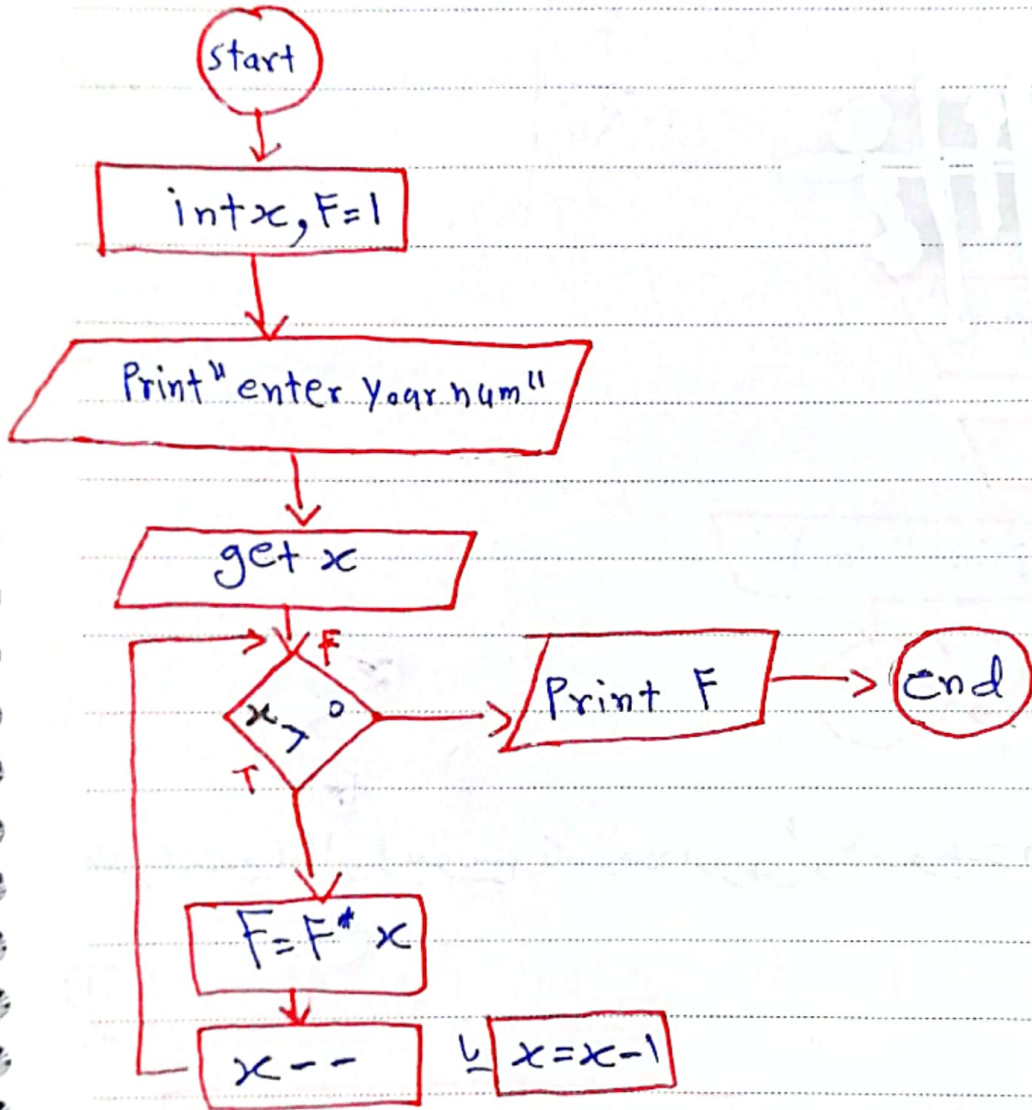 start
int x, F=1
Print "enter your num"
get x
F
x > 0
T
Print F
end
F=F* x
x--
یا
x=x-1